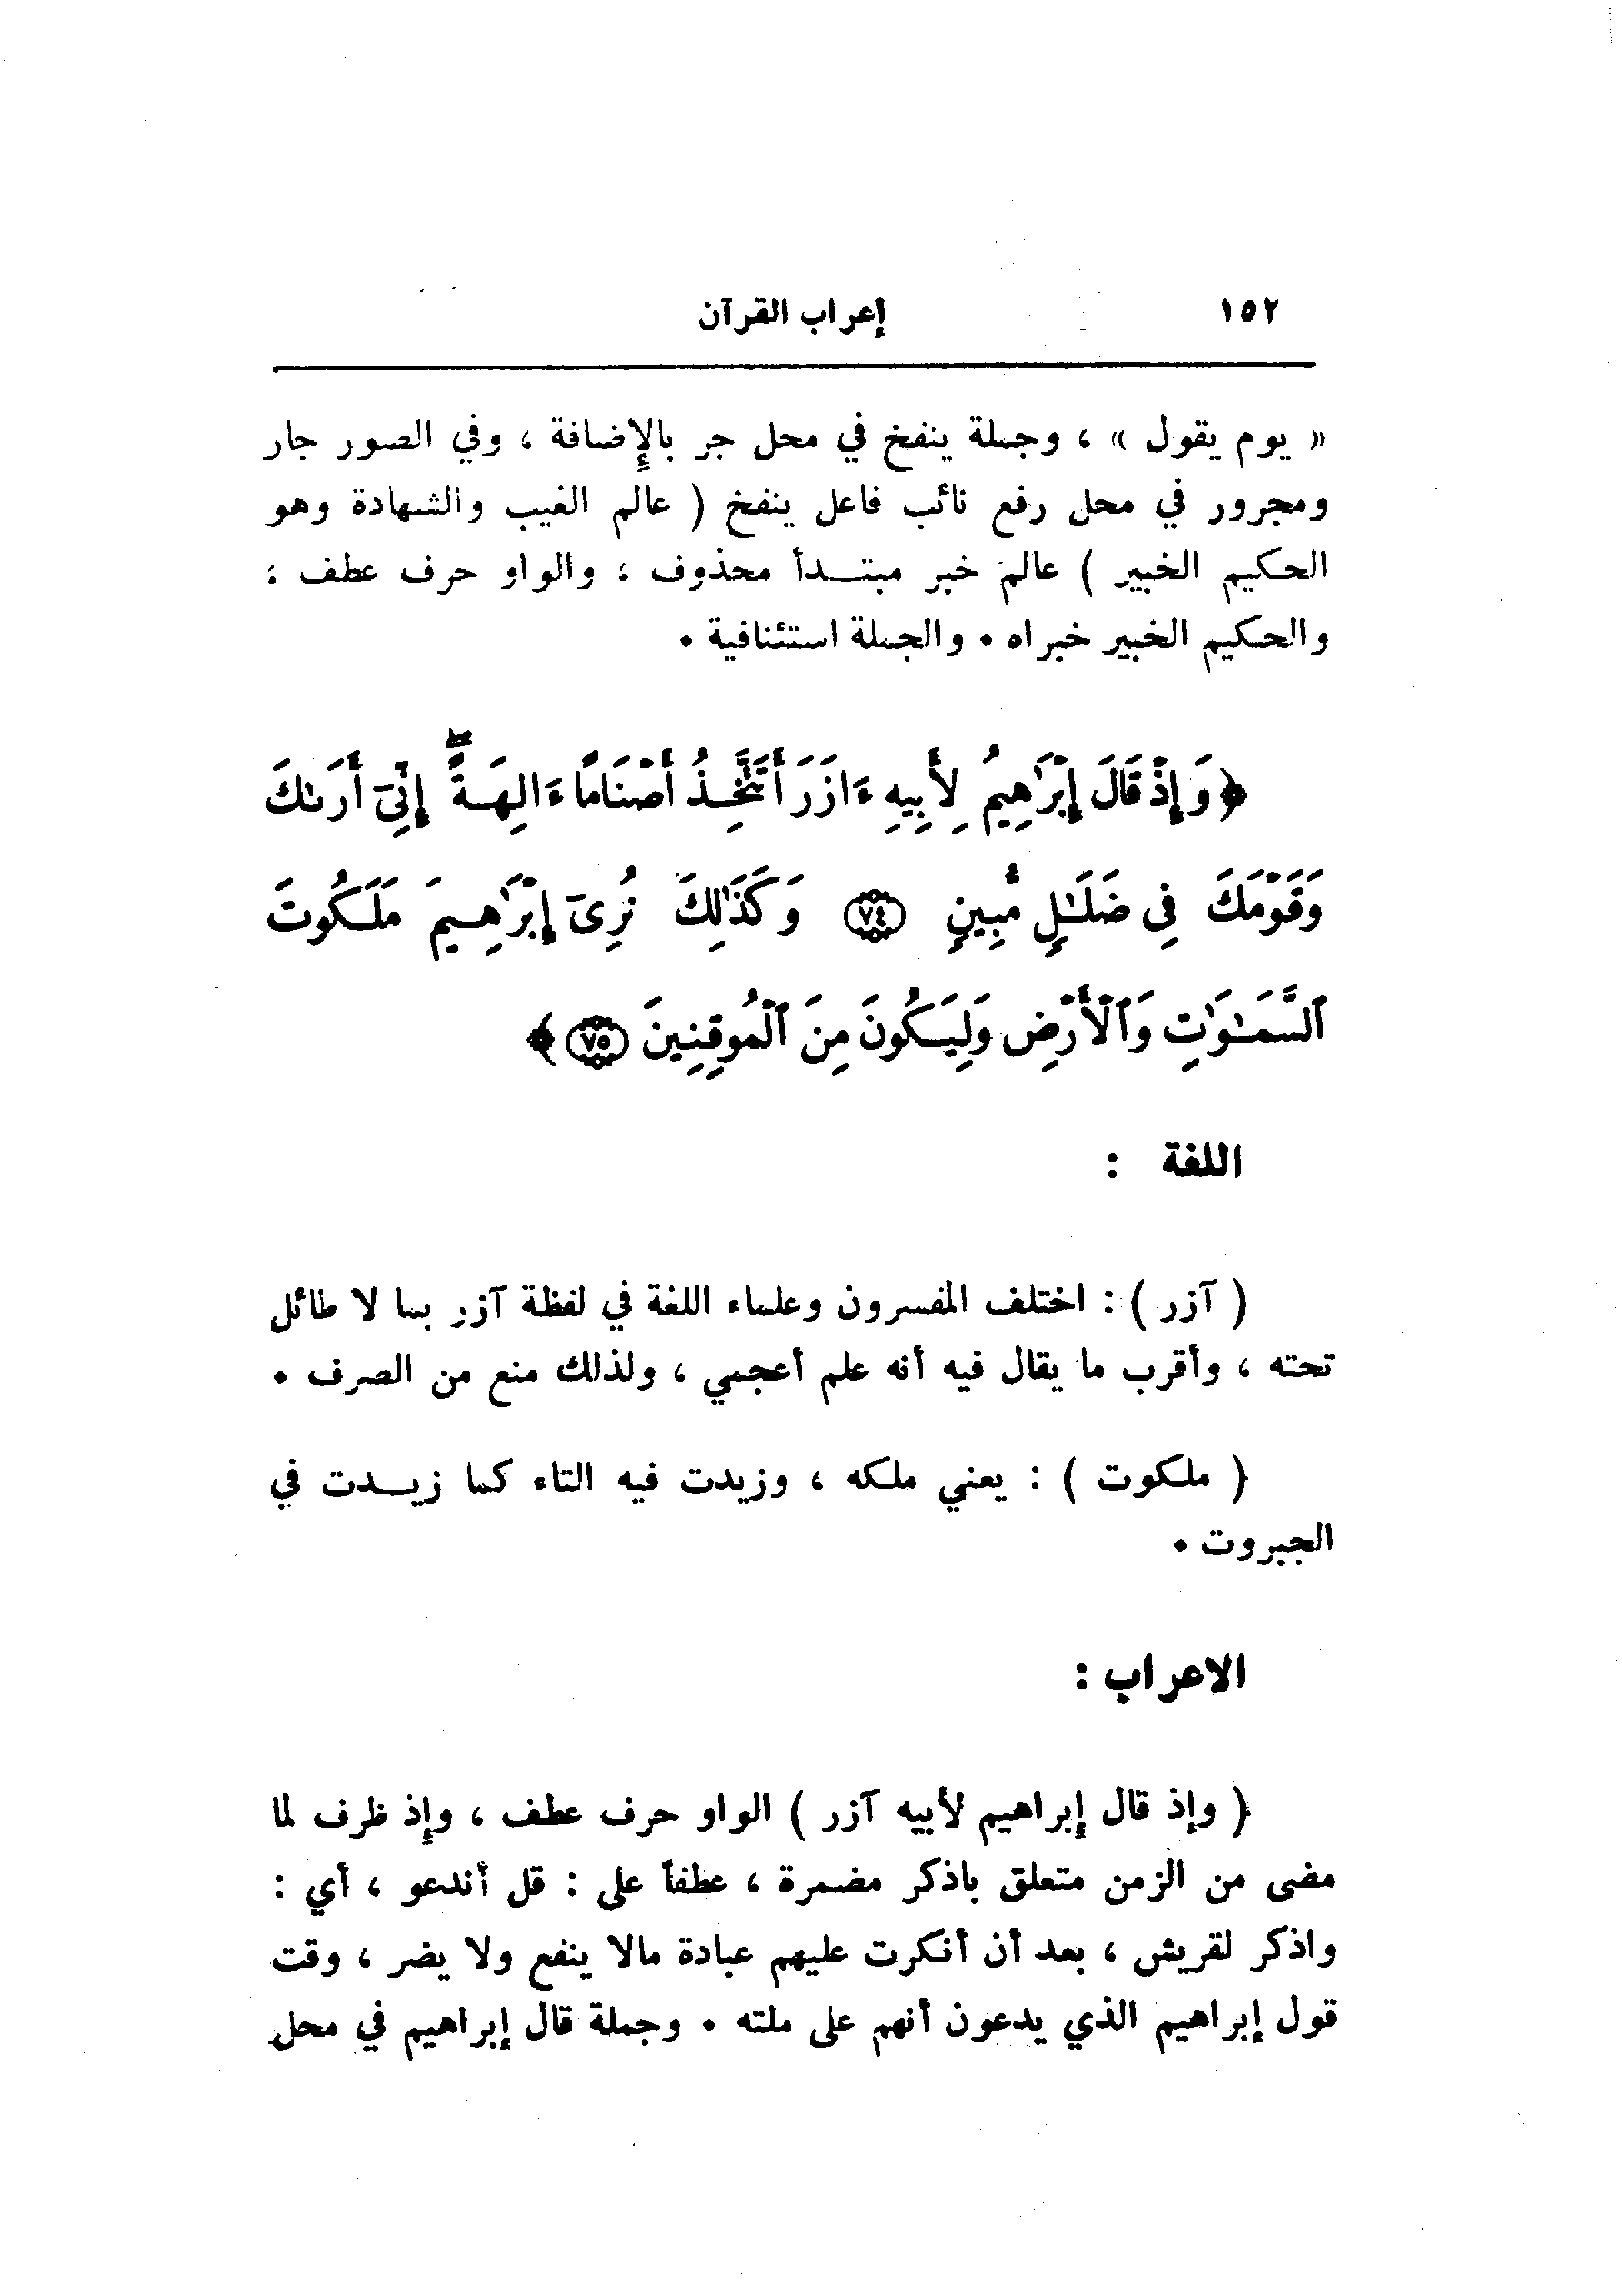 ١٥٢ إعراب القرآن
« يوم يقول » ، وجملة ينفخ في محل جر بالإضافة ، وفي الصور جار
ومجرور في محل رفع نائب فاعل ينفخ ( عالم الغيب والشهادة وهو
الحكيم الخبير ) عالم خبر مبتـــدأ محذوف ؛ والواو حرف عطف ؛
والحكيم الخبير خبراه • والجملة استئنافية •
﴿ وَإِذْ قَالَ إِبْرَٰهِيمُ لِأَبِيهِ ءَازَرَ أَتَتَّخِذُ أَصْنَامًا ءَالِهَةً ۖ إِنِّىٓ أَرَىٰكَ
وَقَوْمَكَ فِى ضَلَـٰلٍ مُّبِينٍ ﴿٧٤﴾ وَكَذَٰلِكَ نُرِىٓ إِبْرَٰهِيمَ مَلَكُوتَ
ٱلسَّمَـٰوَٰتِ وَٱلْأَرْضِ وَلِيَكُونَ مِنَ ٱلْمُوقِنِينَ ﴿٧٥﴾ ﴾
اللغة :
( آزر ) : اختلف المفسرون وعلماء اللغة في لفظة آزر بما لا طائل
تحته ، وأقرب ما يقال فيه أنه علم أعجمي ، ولذلك منع من الصرف •
( ملكوت ) : يعني ملكه ، وزيدت فيه التاء كما زيـــدت في
الجبروت •
الاعراب :
( وإذ قال إبراهيم لأبيه آزر ) الواو حرف عطف ، وإذ ظرف لما
مضى من الزمن متعلق باذكر مضمرة ، عطفاً على : قل أندعو ، أي :
واذكر لقريش ، بعد أن أنكرت عليهم عبادة مالا ينفع ولا يضر ، وقت
قول إبراهيم الذي يدعون أنهم على ملته • وجملة قال إبراهيم في محل